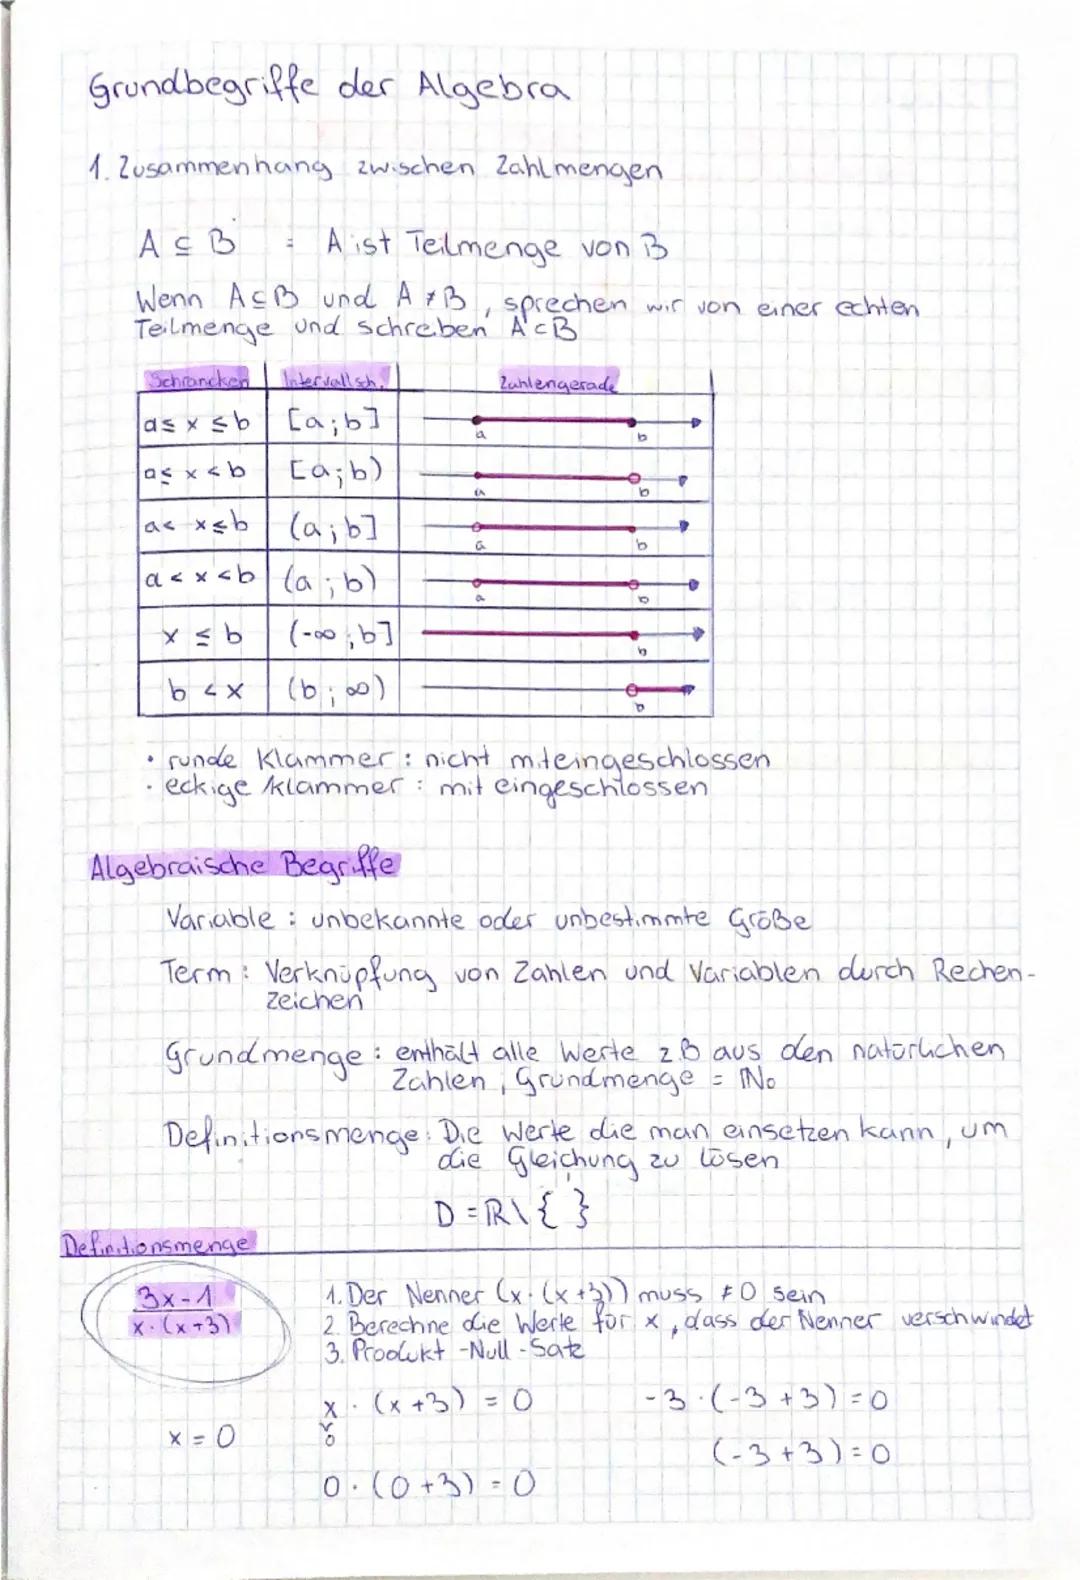 Grundbegriffe der Algebra
1. Zusammenhang zwischen Zahlmengen
A ⊆ B = A ist Teilmenge von B
Wenn A⊆B und A ≠ B, sprechen wir von einer echten
Teilmenge und schreiben A⊂B
Schrancken Intervallsch. Zahlengerade
a≤ x ≤b [a;b] a b
a≤ x <b [a;b) a b
a< x≤b (a;b] a b
a < x <b (a;b) a b
x ≤ b (-∞;b] b
b < x (b;∞) b
• runde Klammer: nicht miteingeschlossen
• eckige Klammer: mit eingeschlossen
Algebraische Begriffe
Variable: unbekannte oder unbestimmte Größe
Term: Verknüpfung von Zahlen und Variablen durch Rechen-
zeichen
Grundmenge: enthält alle Werte z.B aus den natürlichen
Zahlen, Grundmenge = ℕ₀
Definitionsmenge: Die Werte die man einsetzen kann, um
die Gleichung zu lösen
D = ℝ\{ }
Definitionsmenge
3x-1
x·(x+3)
1. Der Nenner (x·(x+3)) muss ≠0 sein
2. Berechne die Werte für x, dass der Nenner verschwindet
3. Produkt-Null-Satz
x·(x+3) = 0 -3·(-3+3)=0
x = 0 0 (-3+3)=0
0·(0+3) = 0